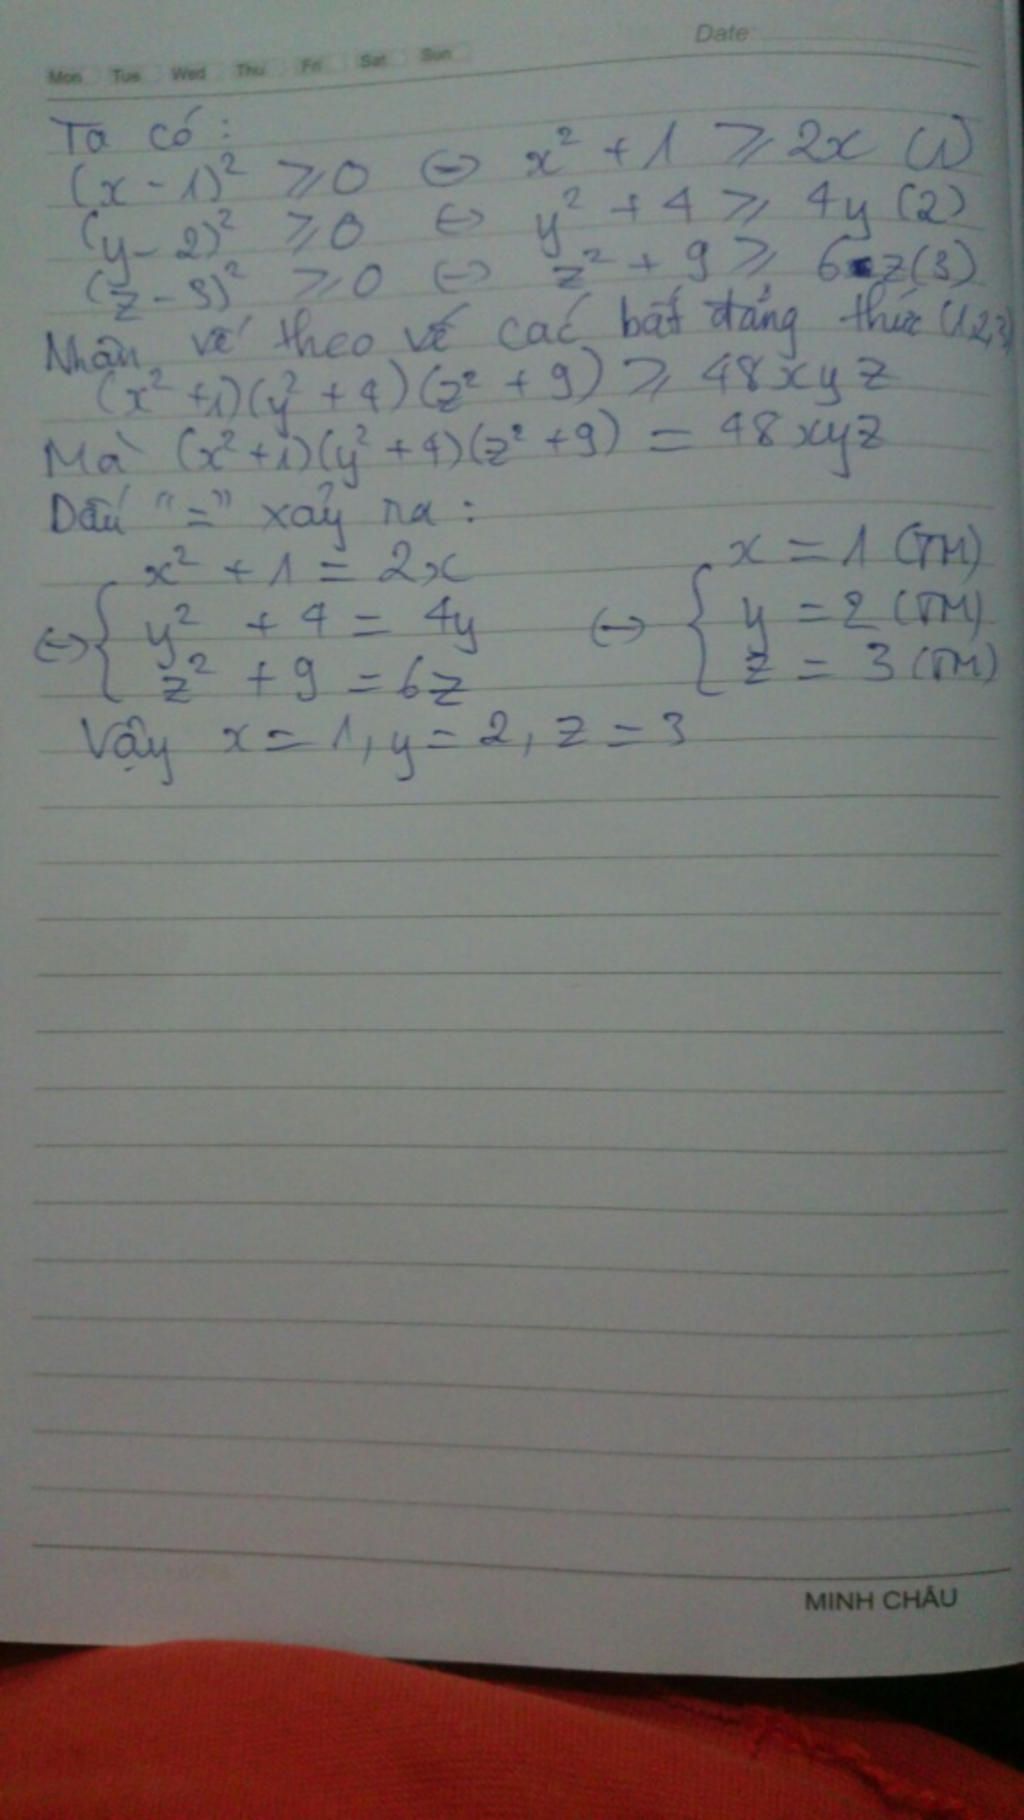 Date:
Mon Tue Wed Thu Fri Sat Sun
Ta có:
(x - 1)² ⩾ 0 ↔ x² + 1 ⩾ 2x (1)
(y - 2)² ⩾ 0 ↔ y² + 4 ⩾ 4y (2)
(z - 3)² ⩾ 0 ↔ z² + 9 ⩾ 6z (3)
Nhân vế theo vế các bất đẳng thức (1,2,3)
(x² + 1)(y² + 4)(z² + 9) ⩾ 48xyz
Mà (x² + 1)(y² + 4)(z² + 9) = 48xyz
Dấu "=" xảy ra:
x² + 1 = 2x
↔ { y² + 4 = 4y
z² + 9 = 6z
↔ { x = 1 (TM)
y = 2 (TM)
z = 3 (TM)
Vậy x = 1, y = 2, z = 3
MINH CHÂU